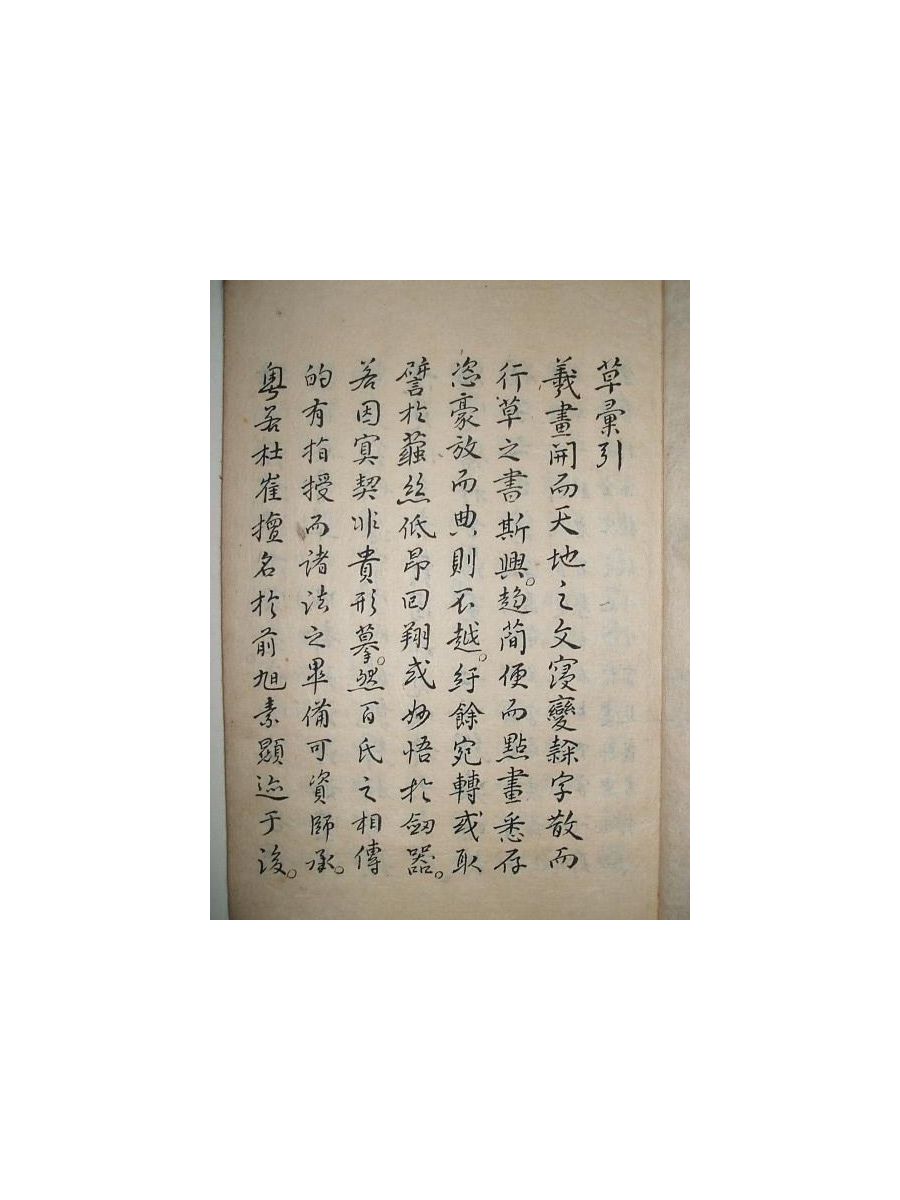 草彙引
羲畫開而天地之文寖變隸字散而
行草之書斯興。趋簡便而點畫悉存
恣豪放而典則不越。紆餘宛轉或取
譬於蠒絲低昂回翔或妙悟於劔器。
若因冥契非貴形摹。然百氏之相傳
的有指授而諸法之畢備可資師承。
粵若杜崔擅名於前旭素顯迹于後。